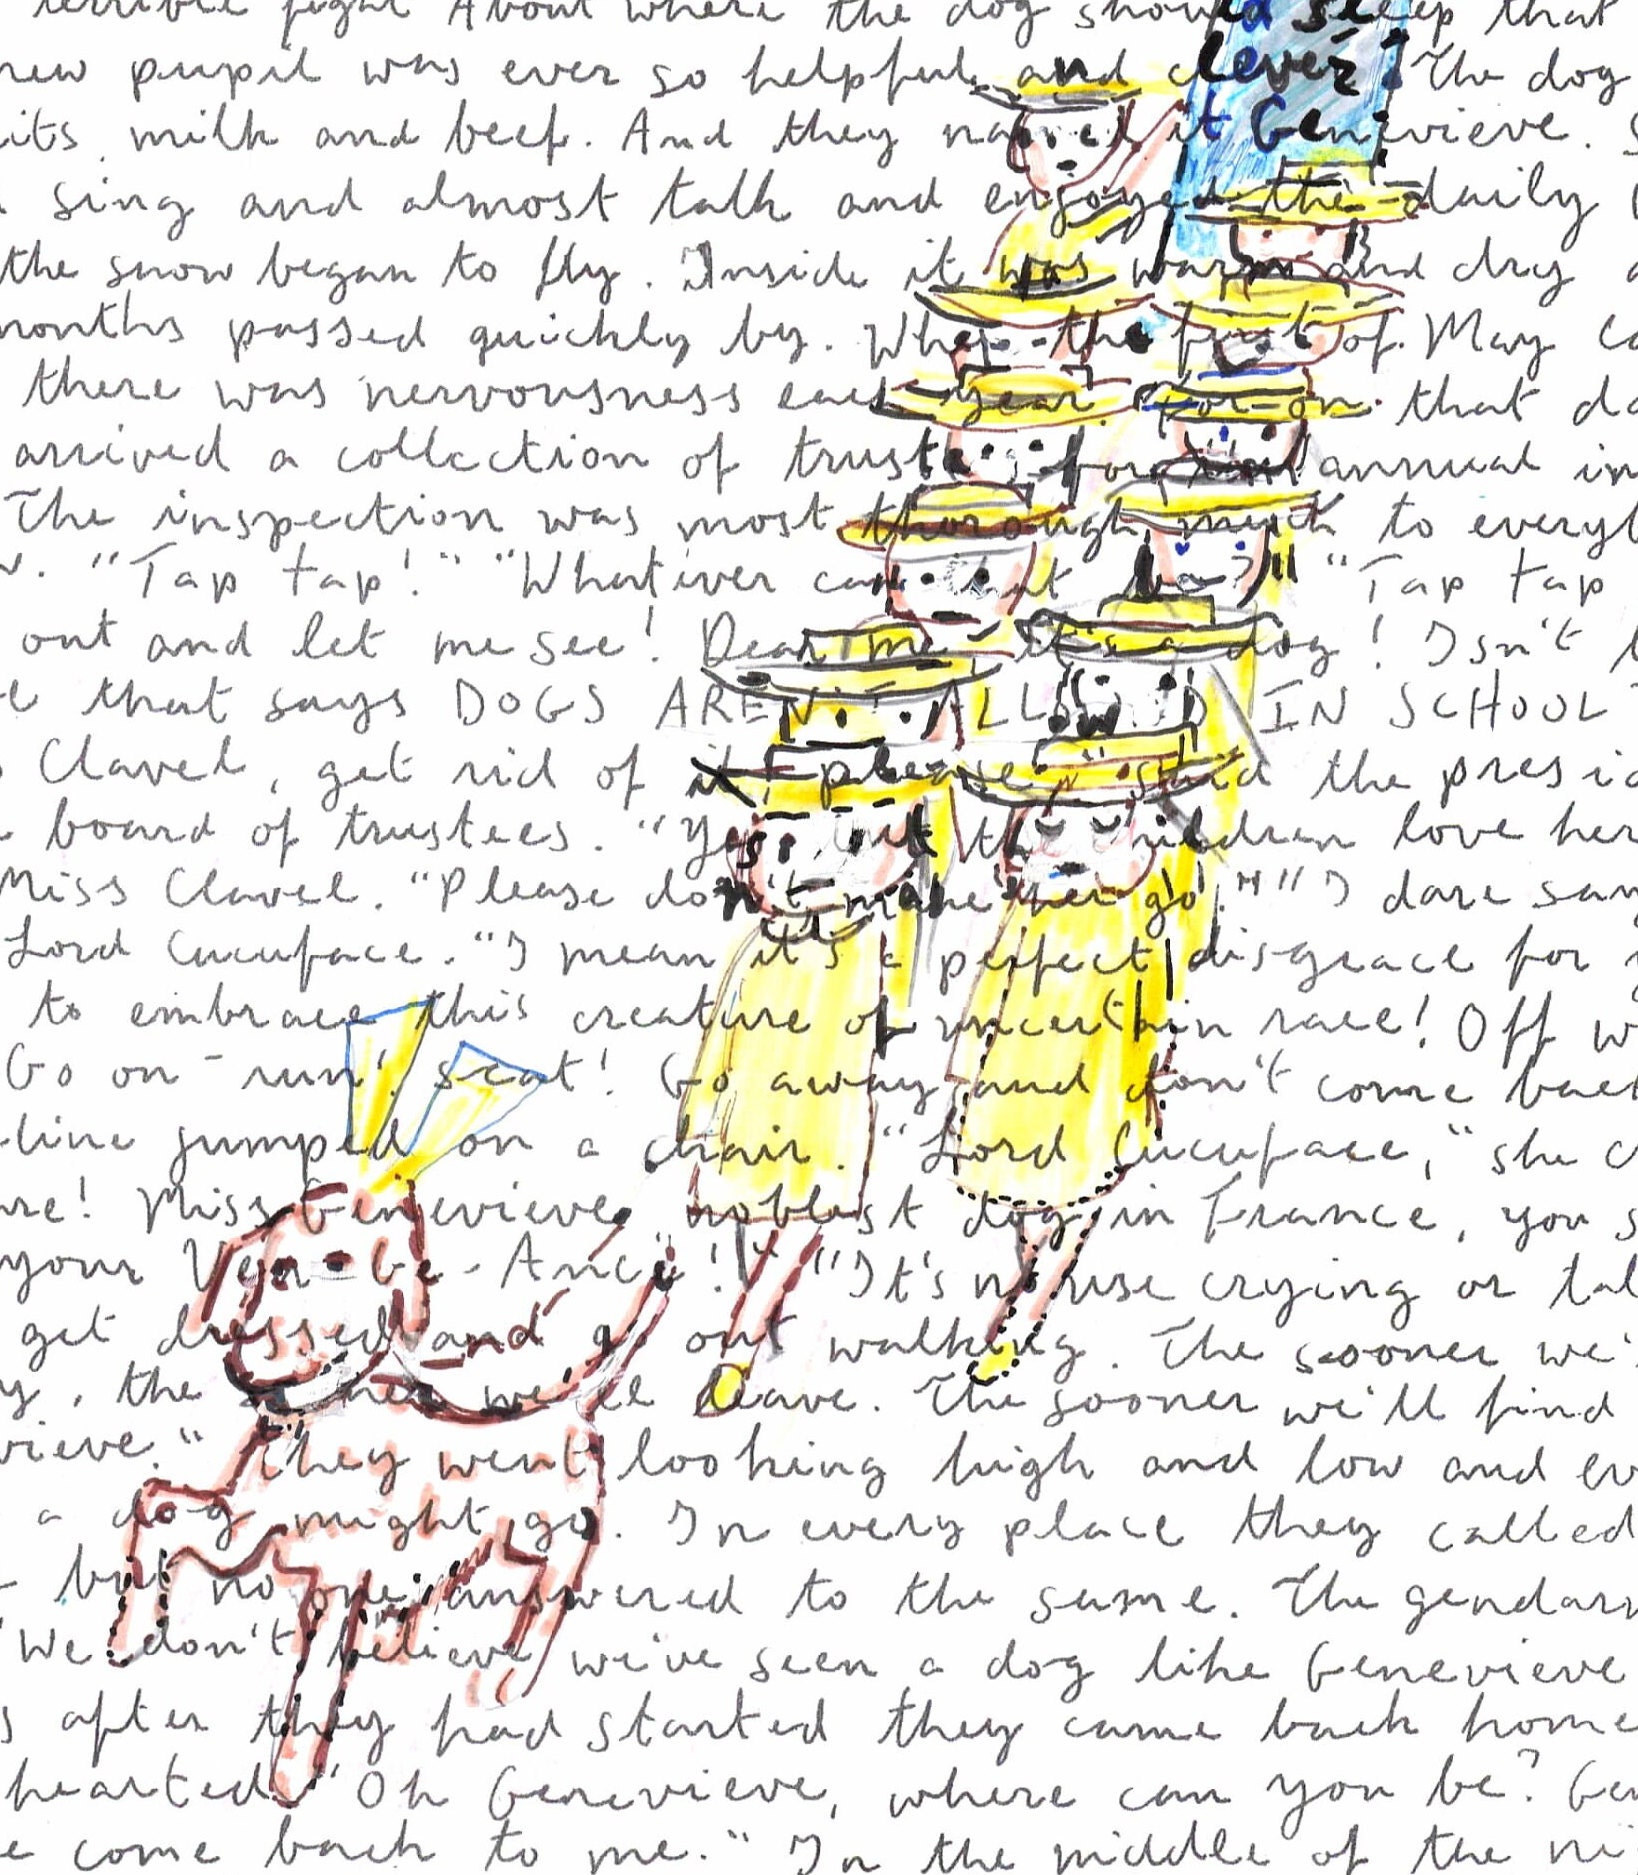 terrible fight About where the dog should sleep that
new pupil was ever so helpful and clever. The dog
its milk and beef. And they named it Genevieve. S
sing and almost talk and enjoyed the daily
the snow began to fly. Inside it was warm and dry
months passed quickly by. When the first of May ca
there was nervousness each year for on that da
arrived a collection of trustees for annual in
The inspection was most thorough much to everyb
"Tap tap!" "Whatever can that be?" "Tap tap
out and let me see! Dear me it's a dog! Isn't
that says DOGS AREN'T ALLOWED IN SCHOOL
Clavel, get rid of it, please," said the presid
board of trustees. "Yes but the children love her
Miss Clavel. "Please don't make her go." "I dare say
Lord Cucuface. "I mean it's a perfect disgrace for y
to embrace this creature of uncertain race! Off w
Go on - run! scat! Go away and don't come back
-line jumped on a chair. "Lord Cucuface," she c
re! Miss Genevieve, noblest dog in France, you s
your Ven-Ge-Ance!" "It's no use crying or tal
get dressed and go out walking. The sooner we'
y, the sooner we'll leave. The sooner we'll find
vieve." They went looking high and low and ev
a dog might go. In every place they called
but no one answered to the same. The gendarm
"We don't believe we've seen a dog like Genevieve
s after they had started they came back home
hearted. "Oh Genevieve, where can you be? Gen
e come back to me." In the middle of the ni